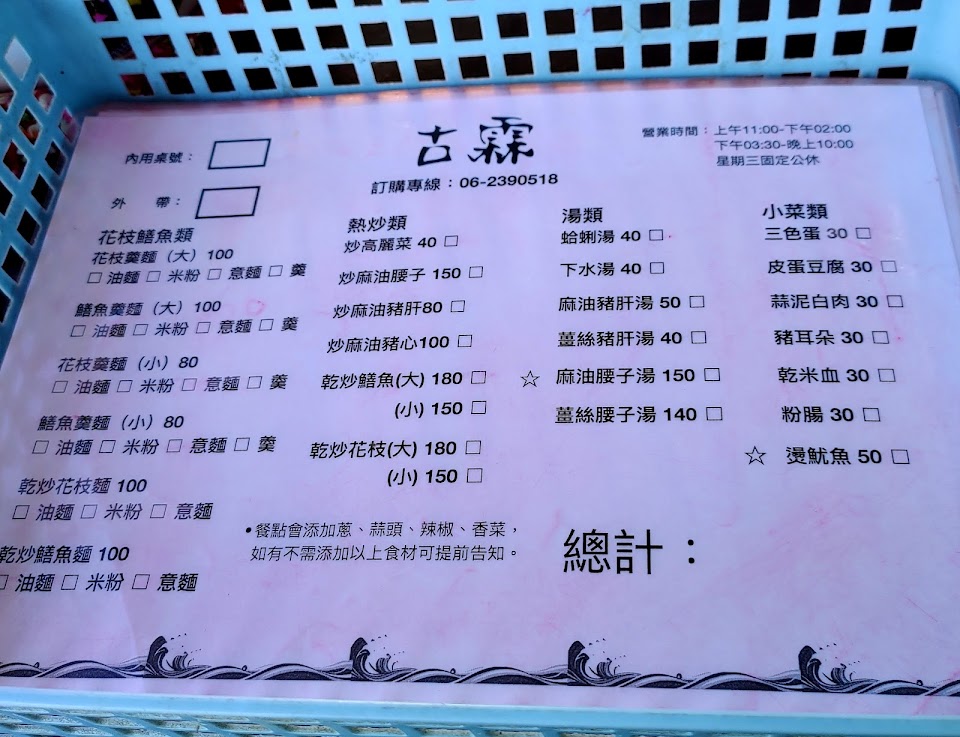 古霖
訂購專線：06-2390518
營業時間：上午11:00-下午02:00
下午03:30-晚上10:00
星期三固定公休
內用桌號：
外　帶：
花枝鱔魚類
花枝羹麵（大）100
□ 油麵 □ 米粉 □ 意麵 □ 羹
鱔魚羹麵（大）100
□ 油麵 □ 米粉 □ 意麵 □ 羹
花枝羹麵（小）80
□ 油麵 □ 米粉 □ 意麵 □ 羹
鱔魚羹麵（小）80
□ 油麵 □ 米粉 □ 意麵 □ 羹
乾炒花枝麵 100
□ 油麵 □ 米粉 □ 意麵
乾炒鱔魚麵 100
□ 油麵 □ 米粉 □ 意麵
熱炒類
炒高麗菜 40 □
炒麻油腰子 150 □
炒麻油豬肝80 □
炒麻油豬心100 □
乾炒鱔魚(大) 180 □
(小) 150 □
乾炒花枝(大) 180 □
(小) 150 □
湯類
蛤蜊湯 40 □
下水湯 40 □
麻油豬肝湯 50 □
薑絲豬肝湯 40 □
☆ 麻油腰子湯 150 □
薑絲腰子湯 140 □
小菜類
三色蛋 30 □
皮蛋豆腐 30 □
蒜泥白肉 30 □
豬耳朵 30 □
乾米血 30 □
粉腸 30 □
☆ 燙魷魚 50 □
•餐點會添加蔥、蒜頭、辣椒、香菜，
如有不需添加以上食材可提前告知。
總計：